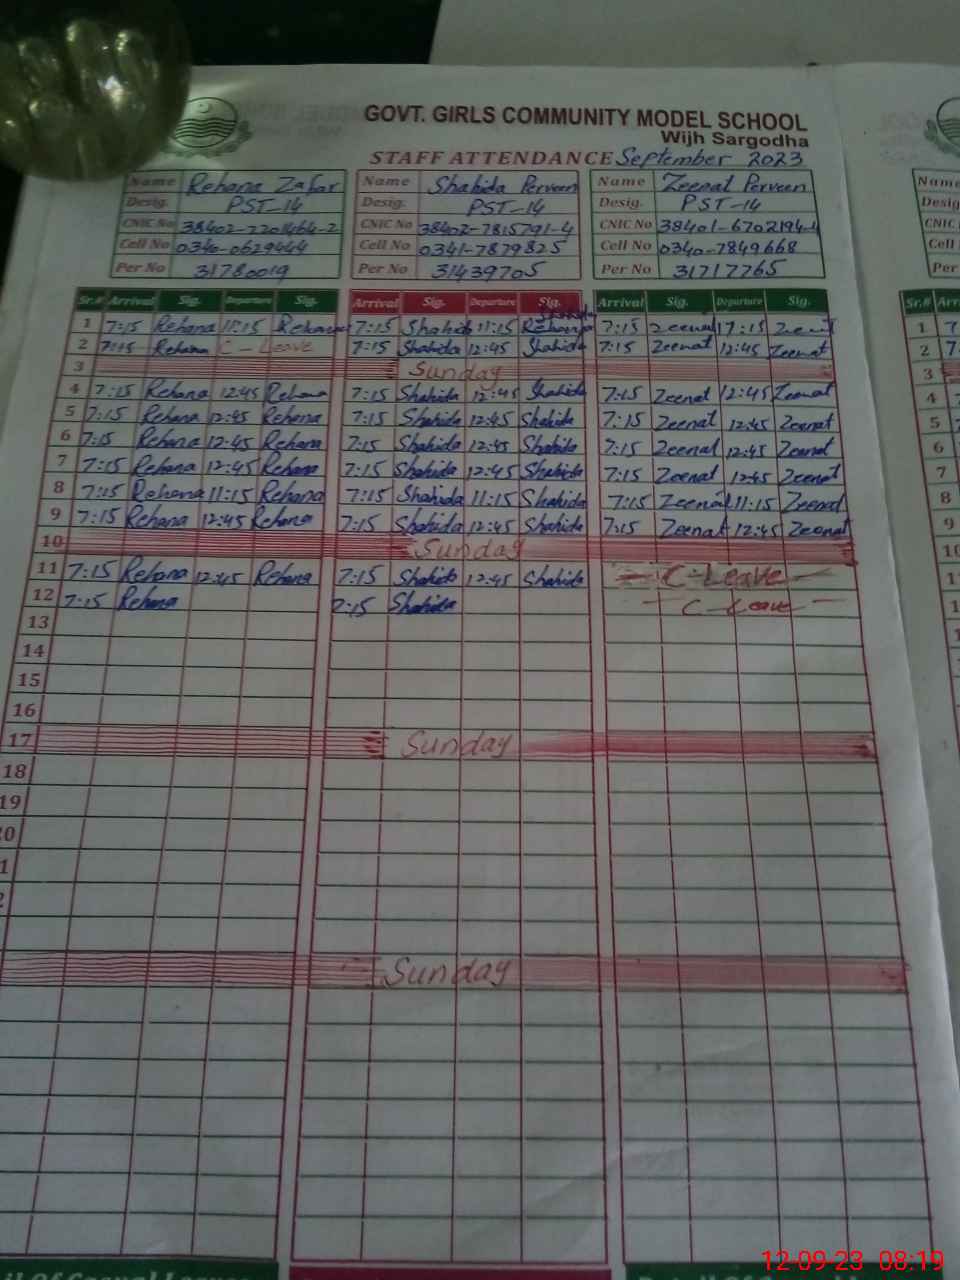 GOVT. GIRLS COMMUNITY MODEL SCHOOL
Wijh Sargodha
STAFF ATTENDANCE September 2023
Name Rehana Zafar Name Shahida Perveen Name Zeenat Perveen Name
Desig. PST-14 Desig. PST-14 Desig. PST-14 Desig
CNIC No 38402- CNIC No 38402-7815791-4 CNIC No 38401-6702194-4 CNIC
Cell No 0340-0629444 Cell No 0341-7879825 Cell No 0340-7849668 Cell
Per No 31780019 Per No 31439705 Per No 31717765 Per
Sr.# Arrival Sig. Departure Sig. Arrival Sig. Departure Sig. Arrival Sig. Departure Sig. Sr.# Arr
1 7:15 Rehana 11:15 Rehana 7:15 Shahida 11:15 7:15 Zeenat 11:15 Zeenat 1 7
2 7:15 Rehana C-Leave 7:15 Shahida 12:45 Shahida 7:15 Zeenat 12:45 Zeenat 2 7
3 Sunday 3
4 7:15 Rehana 12:45 Rehana 7:15 Shahida 12:45 Shahida 7:15 Zeenat 12:45 Zeenat 4
5 7:15 Rehana 12:45 Rehana 7:15 Shahida 12:45 Shahida 7:15 Zeenat 12:45 Zeenat 5
6 7:15 Rehana 12:45 Rehana 7:15 Shahida 12:45 Shahida 7:15 Zeenat 12:45 Zeenat 6
7 7:15 Rehana 12:45 Rehana 7:15 Shahida 12:45 Shahida 7:15 Zeenat 12:45 Zeenat 7
8 7:15 Rehana 11:15 Rehana 7:15 Shahida 11:15 Shahida 7:15 Zeenat 11:15 Zeenat 8
9 7:15 Rehana 12:45 Rehana 7:15 Shahida 12:45 Shahida 7:15 Zeenat 12:45 Zeenat 9
10 Sunday 10
11 7:15 Rehana 12:45 Rehana 7:15 Shahida 12:45 Shahida C-Leave
12 7:15 Rehana 7:15 Shahida C-Leave
13
14
15
16
17 Sunday
18
19
Sunday
12-09-23 08:19